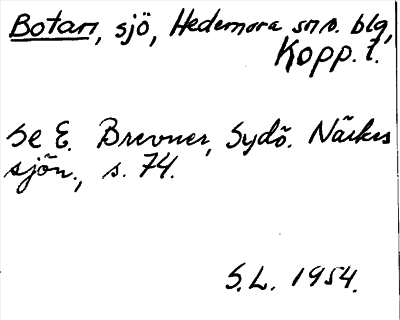 Botan, sjö, Hedemora sn o. blg,
Kopp. l.
Se E. Brevner, Sydö. Närkes
sjön., s. 74.
S.L. 1954.